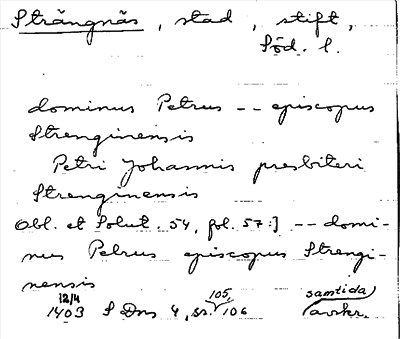 Strängnäs, stad, stift,
Söd. l.
dominus Petrus -- episcopus
Strenginensis
Petri Johannis presbiteri
Strenginensis
Obl. et Solut. 54, fol. 57:] -- domi-
nus Petrus episcopus Strengi-
nensis
12/4 105, samtida)
1403 S Dns 4, ss. 106 (avskr.